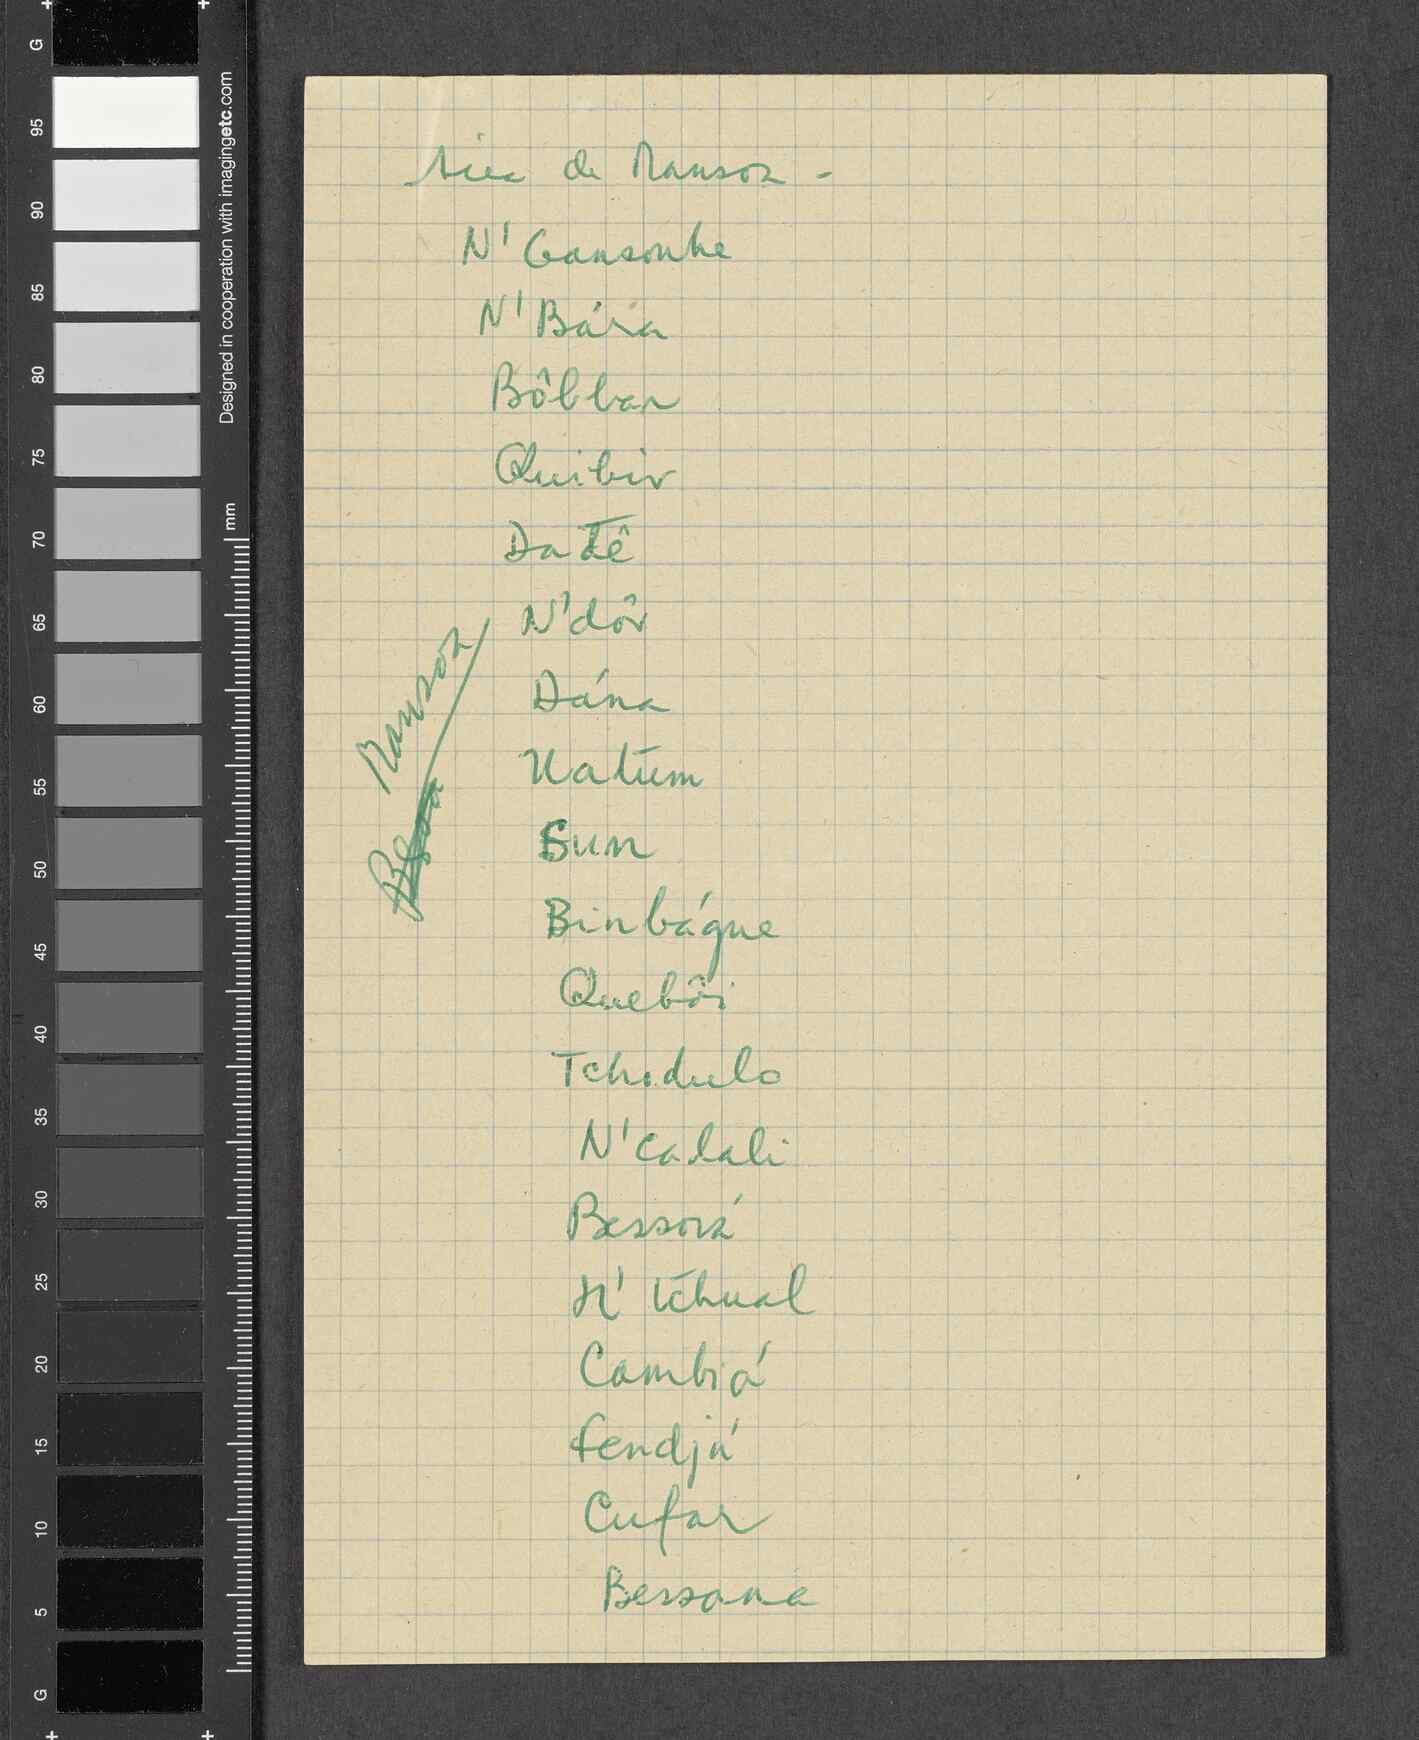 de Mansoa -
N' Gansonhe
N' Bára
Bôbbar
Quibir
Datê
N'dôr
Dána
Natum
Sun
Binbágue
Quebôi
Tchedulo
N'Calali
Bessorá
N' tchual
Cambiá
Fendjá
Cufar
Bessana
Mansoa
G
95
90
85
80
75
70
65
60
55
50
45
40
35
30
25
20
15
10
5
G
Designed in cooperation with imagingetc.com
mm